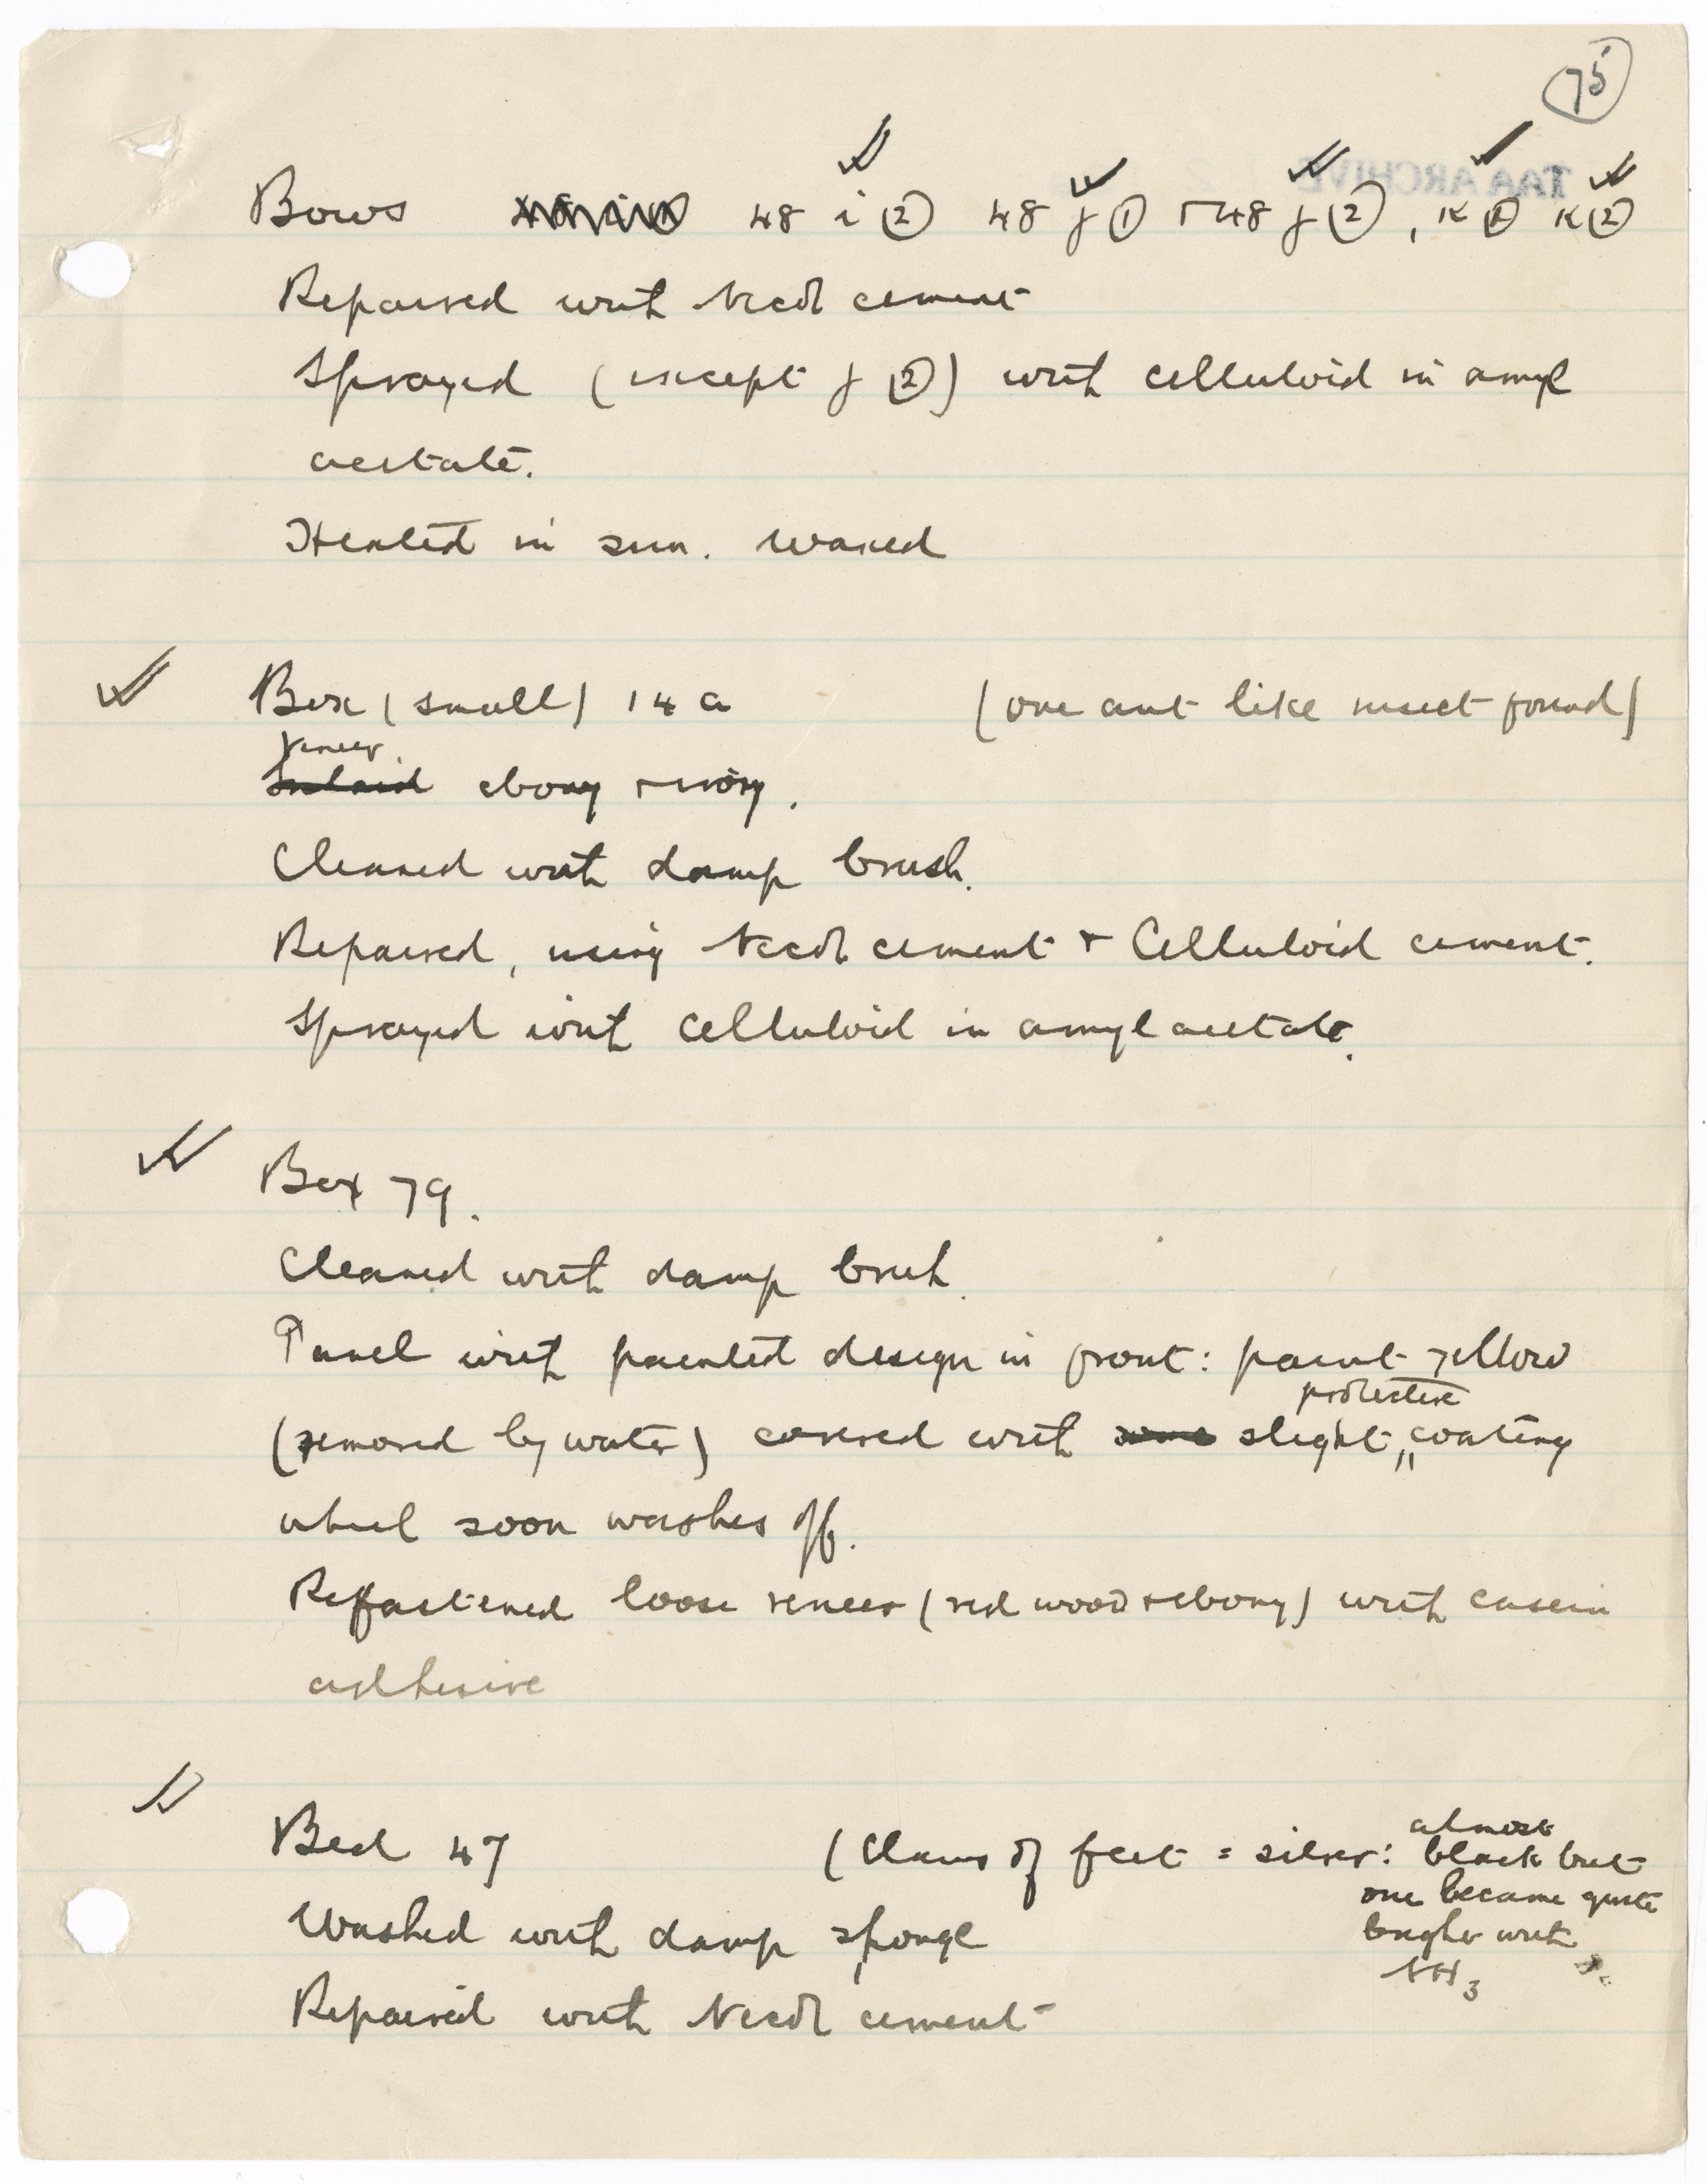 75
TAA ARCHIVE
Bows 48 i (2) 48 j (1) + 48 j (2), K (1) K (2)
Repaired with Necol cement
Sprayed (except j (2)) with celluloid in amyl
acetate.
Heated in sun. Waxed
Box (small) 14 a (one ant like insect found)
Veneer.
Inlaid ebony + ivory.
Cleaned with damp brush.
Repaired, using Necol cement + Celluloid cement.
Sprayed with celluloid in amyl acetate.
Box 79.
Cleaned with damp brush.
Panel with painted design in front: paint yellow
protective
(removed by water) covered with some slight, coating
which soon washes off.
Refastened loose veneer (red wood + ebony) with casein
adhesive
almost
Bed 47 (Claws of feet = silver: black but
one became quite
Washed with damp sponge
bright with
NH3
Repaired with Necol cement